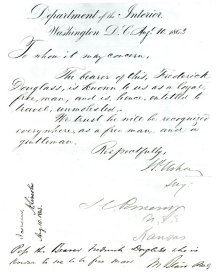 Department of the Interior.
Washington D.C. Aug. 10. 1863
To whom it may concern,
The bearer of this, Frederick
Douglass, is known to us as a loyal,
free, man, and is, hence, entitled to
travel, unmolested.
We trust he will be recognized
everywhere, as a free man, and a
gentleman.
Respectfully,
J. P. Usher
Secy.
S. C. Pomeroy
U.S.S.
Kansas
Aug 10. 1863
Pass the Bearer Frederick Douglass who is
known to me to be a free man
M Blair